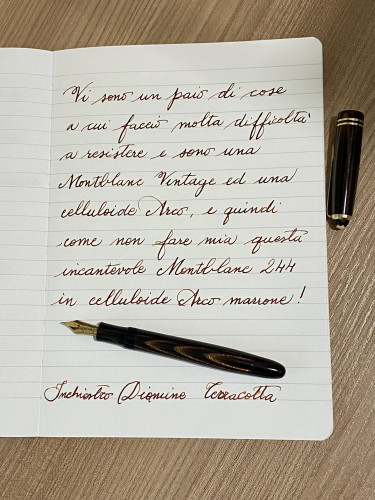 Vi sono un paio di cose
a cui faccio molta difficoltà
a resistere e sono una
Montblanc Vintage ed una
celluloide Arco, e quindi
come non fare mia questa
incantevole Montblanc 244
in celluloide Arco marrone!
Inchiostro Diamine Terracotta